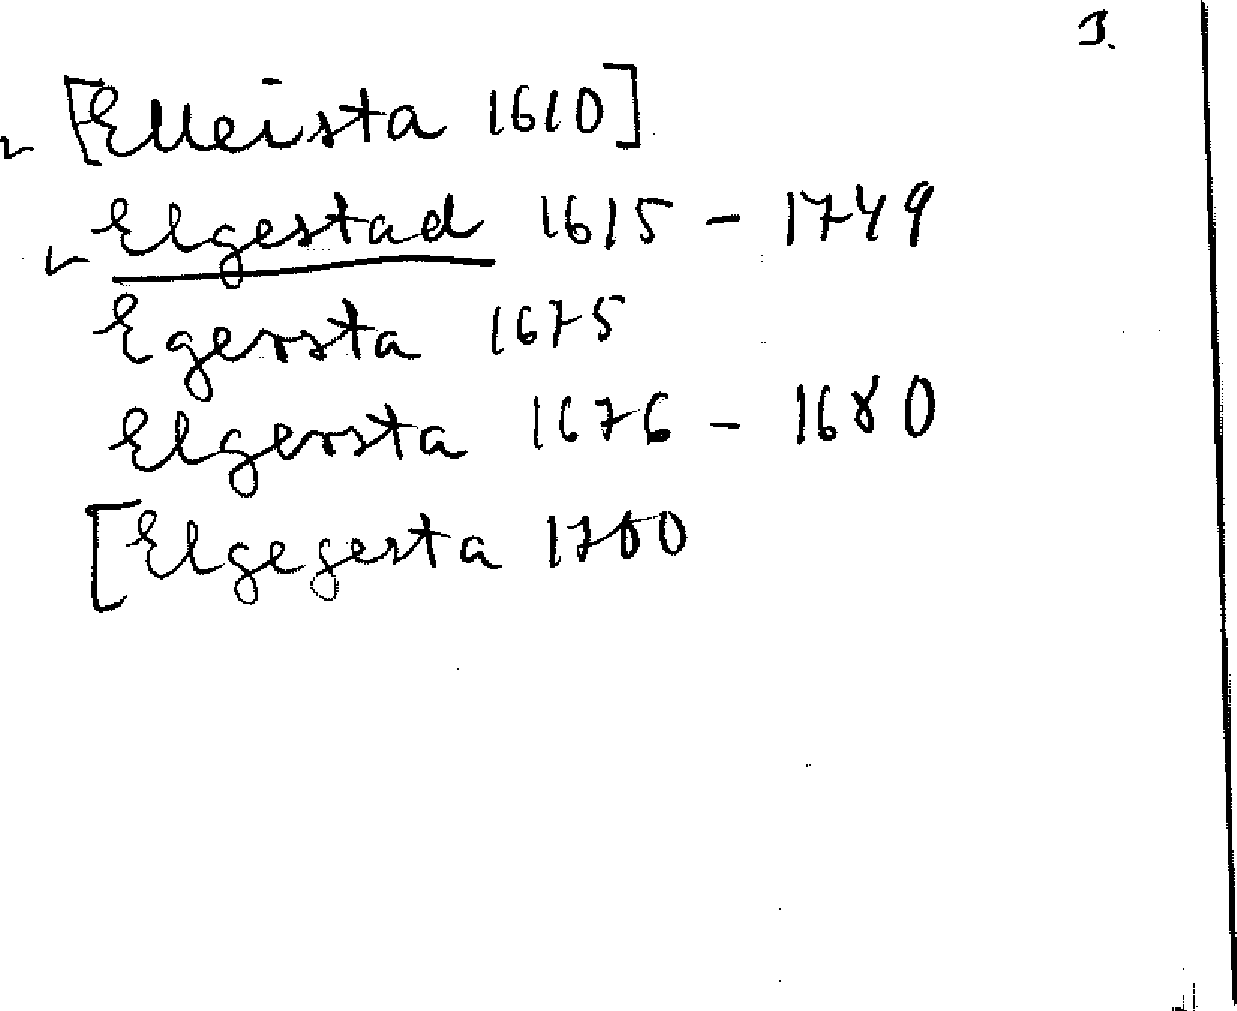 1.
[Elleista 1610]
Elgestad 1615 - 1749
Egersta 1675
Elgersta 1676 - 1680
[Elgegesta 1700